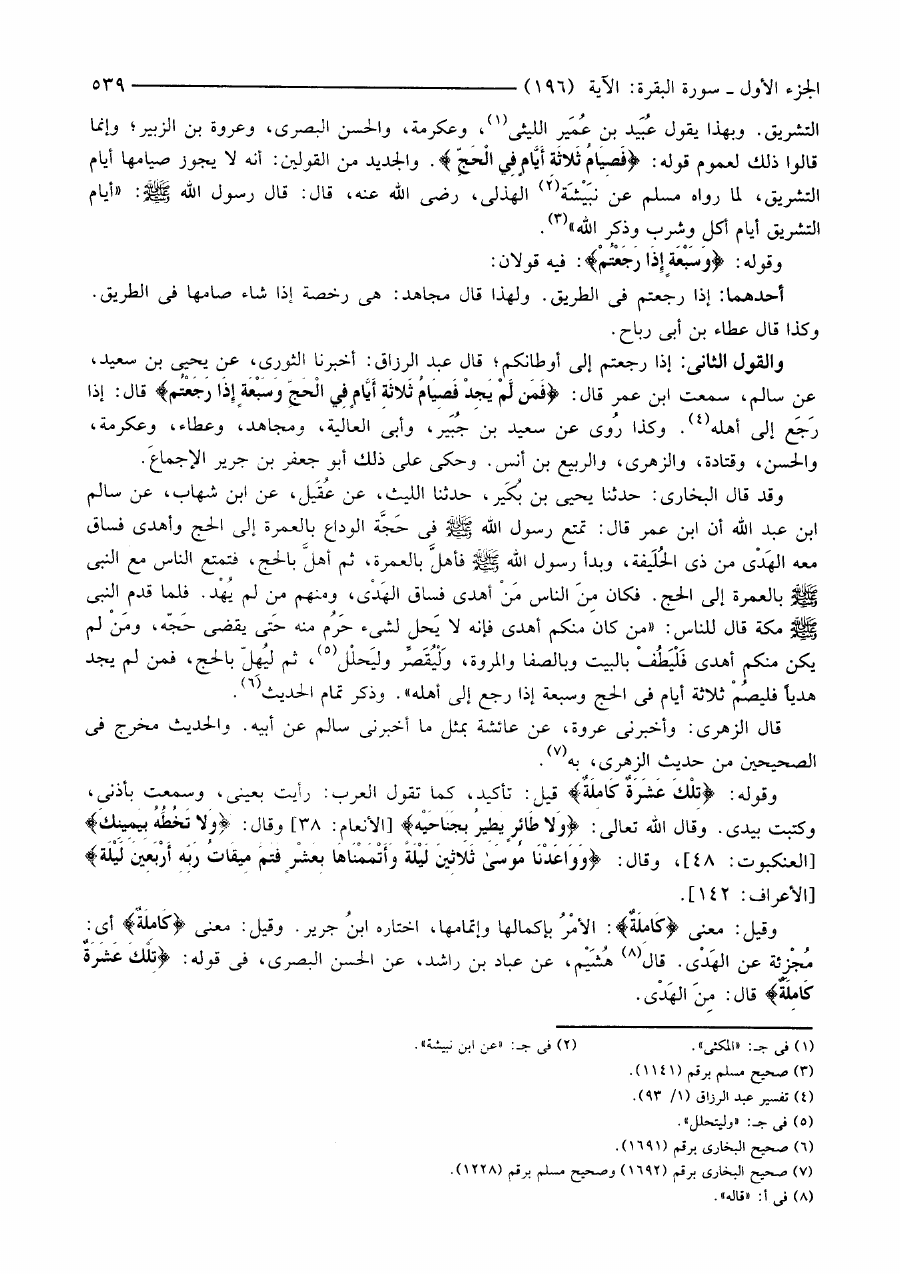 الجزء الأول ـ سورة البقرة: الآية (١٩٦) ٥٣٩
التشريق. وبهذا يقول عُبَيد بن عُمَير الليثى(١)، وعكرمة، والحسن البصرى، وعروة بن الزبير؛ وإنما
قالوا ذلك لعموم قوله: ﴿فَصِيَامُ ثَلاثَةِ أَيَّامٍ فِي الْحَجِّ﴾. والجديد من القولين: أنه لا يجوز صيامها أيام
التشريق، لما رواه مسلم عن نبَيْشَة(٢) الهذلى، رضى الله عنه، قال: قال رسول الله ﷺ: «أيام
التشريق أيام أكل وشرب وذكر الله»(٣).
وقوله: ﴿وَسَبْعَةٍ إِذَا رَجَعْتُمْ﴾: فيه قولان:
أحدهما: إذا رجعتم فى الطريق. ولهذا قال مجاهد: هى رخصة إذا شاء صامها فى الطريق.
وكذا قال عطاء بن أبى رباح.
والقول الثانى: إذا رجعتم إلى أوطانكم؛ قال عبد الرزاق: أخبرنا الثورى، عن يحيى بن سعيد،
عن سالم، سمعت ابن عمر قال: ﴿فَمَن لَّمْ يَجِدْ فَصِيَامُ ثَلاثَةِ أَيَّامٍ فِي الْحَجِّ وَسَبْعَةٍ إِذَا رَجَعْتُم﴾ قال: إذا
رَجَع إلى أهله(٤). وكذا رُوى عن سعيد بن جُبَير، وأبى العالية، ومجاهد، وعطاء، وعكرمة،
والحسن، وقتادة، والزهرى، والربيع بن أنس. وحكى على ذلك أبو جعفر بن جرير الإجماعَ.
وقد قال البخارى: حدثنا يحيى بن بُكَير، حدثنا الليث، عن عُقَيل، عن ابن شهاب، عن سالم
ابن عبد الله أن ابن عمر قال: تمتع رسول الله ﷺ فى حَجَّة الوداع بالعمرة إلى الحج وأهدى فساق
معه الهَدْى من ذى الحُلَيفة، وبدأ رسول الله ﷺ فأهلَّ بالعمرة، ثم أهلَّ بالحج، فتمتع الناس مع النبى
ﷺ بالعمرة إلى الحج. فكان مِنَ الناس مَنْ أهدى فساق الهَدْى، ومنهم من لم يُهْد. فلما قدم النبى
ﷺ مكة قال للناس: «من كان منكم أهدى فإنه لا يَحل لشىء حَرُم منه حَتى يقضى حَجّه، ومَنْ لم
يكن منكم أهدى فَلْيَطُفْ بالبيت وبالصفا والمروة، وَلْيُقَصِّر وليَحلْل(٥)، ثم ليُهِلّ بالحج، فمن لم يجد
هدياً فليصُمْ ثلاثة أيام فى الحج وسبعة إذا رجع إلى أهله». وذكر تمام الحديث(٦).
قال الزهرى: وأخبرنى عروة، عن عائشة بمثل ما أخبرنى سالم عن أبيه. والحديث مخرج فى
الصحيحين من حديث الزهرى، به(٧).
وقوله: ﴿تِلْكَ عَشَرَةٌ كَامِلَةٌ﴾ قيل: تأكيد، كما تقول العرب: رأيت بعينى، وسمعت بأذنى،
وكتبت بيدى. وقال الله تعالى: ﴿وَلا طَائِرٍ يَطِيرُ بِجَنَاحَيْهِ﴾ [الأنعام: ٣٨] وقال: ﴿وَلا تَخُطُّهُ بِيَمِينِكَ﴾
[العنكبوت: ٤٨]، وقال: ﴿وَوَاعَدْنَا مُوسَىٰ ثَلاثِينَ لَيْلَةً وَأَتْمَمْنَاهَا بِعَشْرٍ فَتَمَّ مِيقَاتُ رَبِّهِ أَرْبَعِينَ لَيْلَةً﴾
[الأعراف: ١٤٢].
وقيل: معنى ﴿كَامِلَةٌ﴾: الأمْرُ بإكمالها وإتمامها، اختاره ابنُ جرير. وقيل: معنى ﴿كَامِلَةٌ﴾ أى:
مُجْزئة عن الهَدْى. قال(٨) هُشَيْم، عن عباد بن راشد، عن الحسن البصرى، فى قوله: ﴿تِلْكَ عَشَرَةٌ
كَامِلَةٌ﴾ قال: مِنَ الهَدْى.
(١) فى جـ: «المكثى». (٢) فى جـ: «عن ابن نبيشة».
(٣) صحيح مسلم برقم (١١٤١).
(٤) تفسير عبد الرزاق (١/ ٩٣).
(٥) فى جـ: «وليتحلل».
(٦) صحيح البخارى برقم (١٦٩١).
(٧) صحيح البخارى برقم (١٦٩٢) وصحيح مسلم برقم (١٢٢٨).
(٨) فى أ: «قاله».